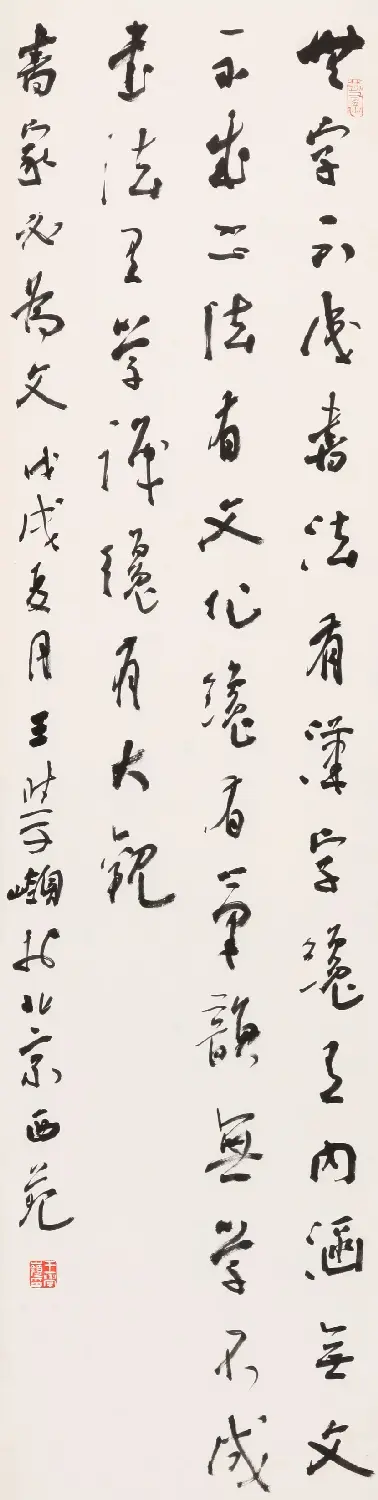 無字不成書法有漢字纔有內涵無文
不成書法有文化纔有氣韻無學不成
書法有學識纔有大觀
書家必為文戊戌夏月王學嶺於北京西苑